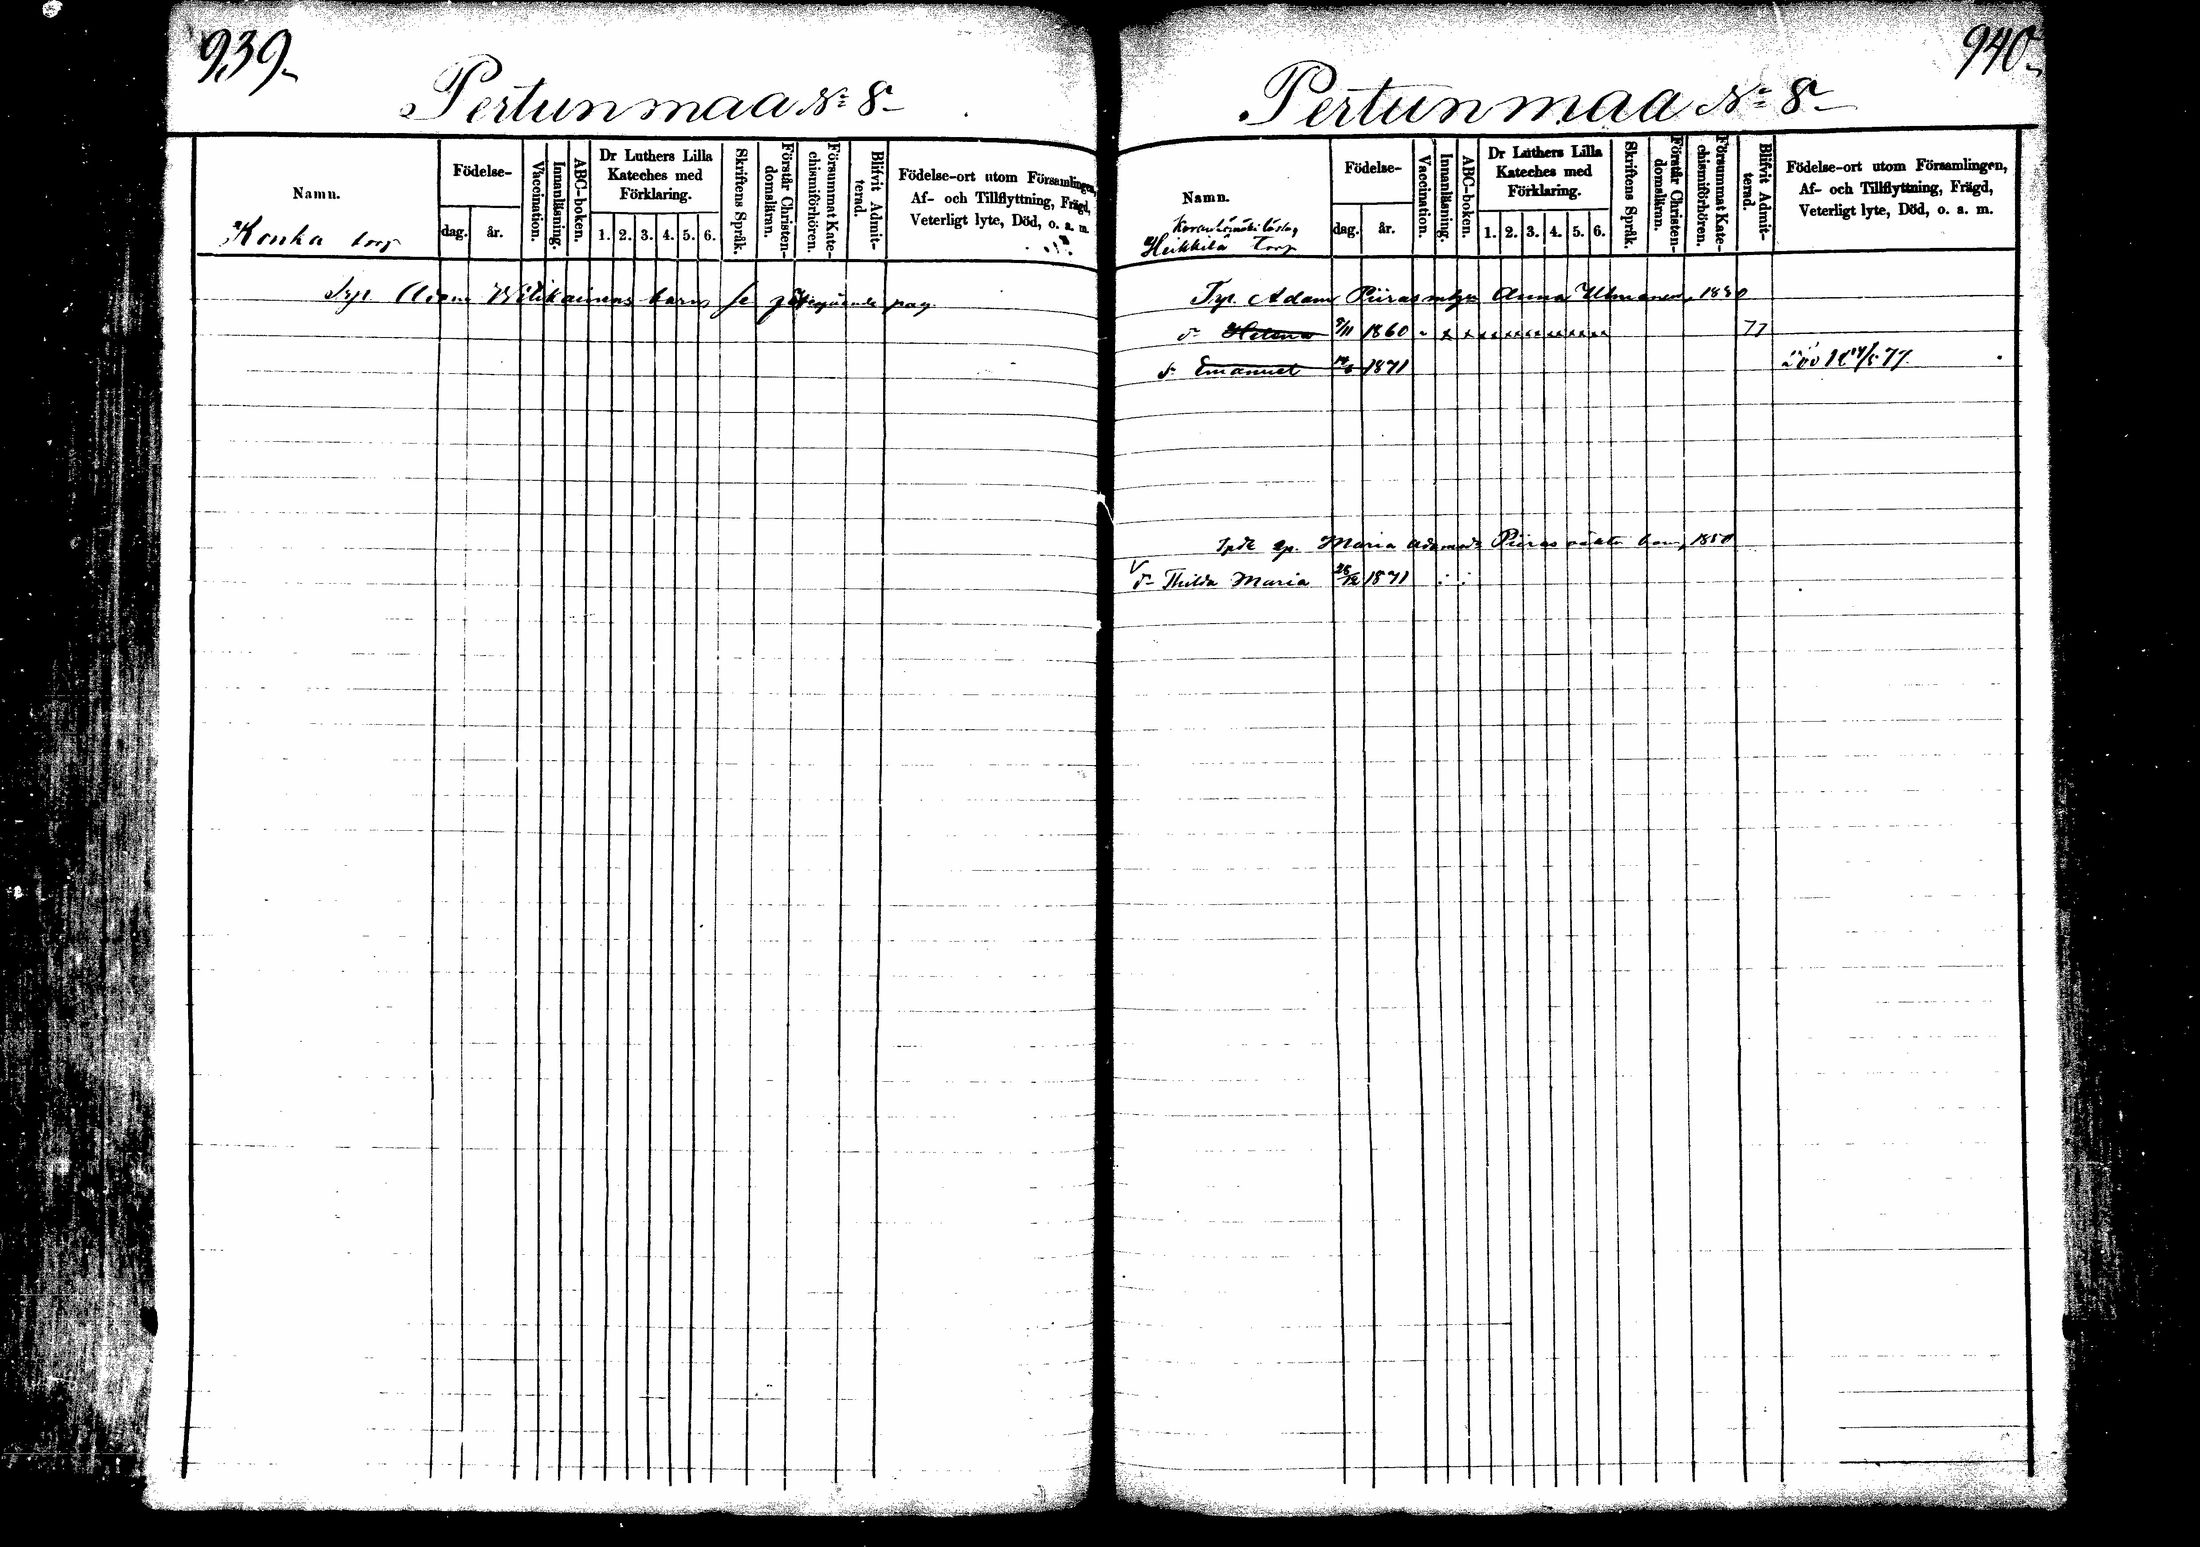 939
Pertunmaa № 8
Namn.
Födelse-
dag.
år.
Vaccination.
Innanläsning.
ABC-boken.
Dr Luthers Lilla
Kateches med
Förklaring.
1. 2. 3. 4. 5. 6.
Skriftens Språk.
Förstår Christen-
domsläran.
Försummat Kate-
chismiförhören.
Blifvit Admit-
terad.
Födelse-ort utom Församlingen,
Af- och Tillflyttning, Frägd,
Veterligt lyte, Död, o. a. m.
Konka torp
barn se pag.
940
Pertunmaa № 8
Namn.
Heikkilä Torp
Födelse-
dag.
år.
Vaccination.
Innanläsning.
ABC-boken.
Dr Luthers Lilla
Kateches med
Förklaring.
1. 2. 3. 4. 5. 6.
Skriftens Språk.
Förstår Christen-
domsläran.
Försummat Kate-
chismiförhören.
Blifvit Admit-
terad.
Födelse-ort utom Församlingen,
Af- och Tillflyttning, Frägd,
Veterligt lyte, Död, o. a. m.
Adam Piiras Anna
d. Helena 9/11 1860 77
s. Emanuel 1871
Maria Piiras
d. Thilda Maria 1871